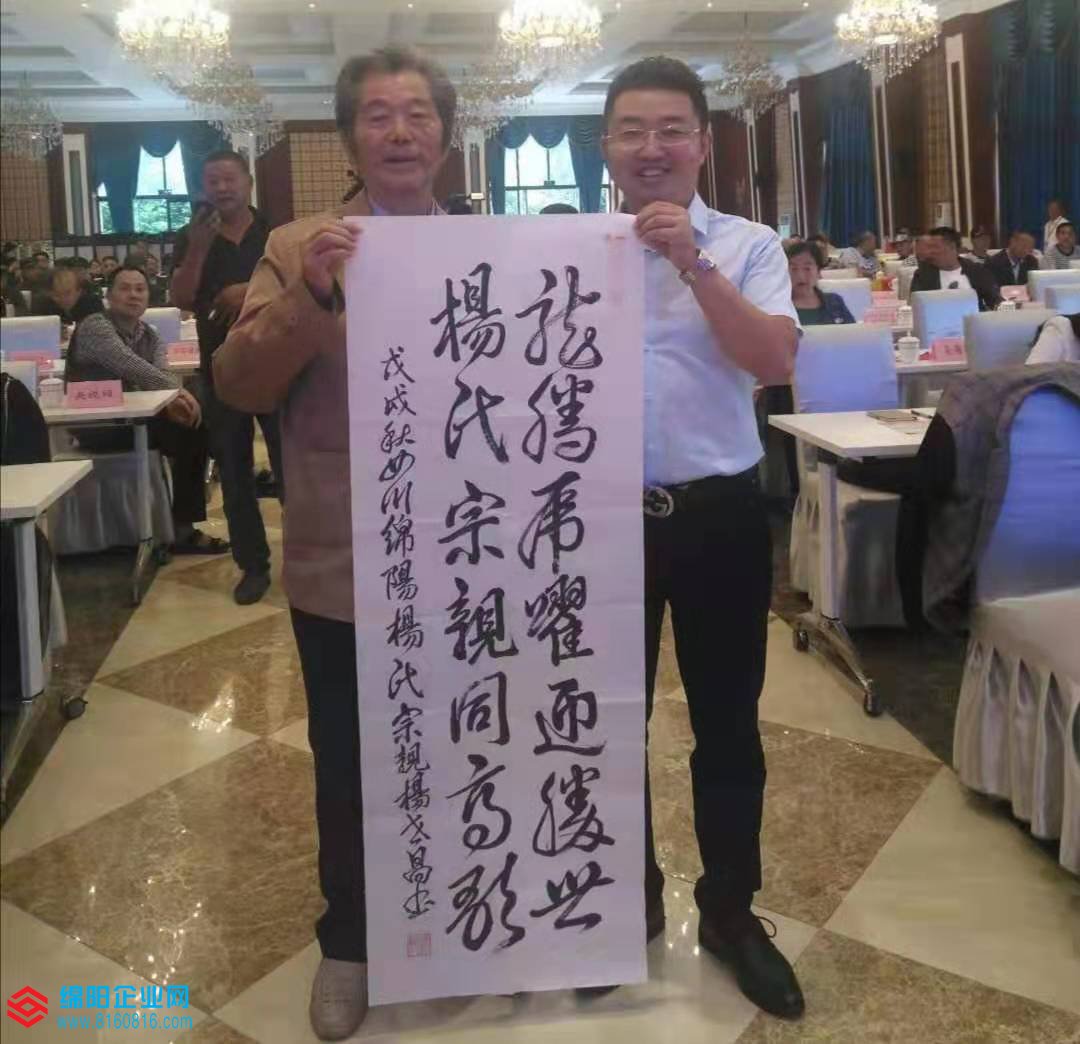 龍騰虎躍迎勝世
楊氏宗親同高歌
戊戌秋四川綿陽楊氏宗親楊昌书
绵阳企业网
www.8160816.com